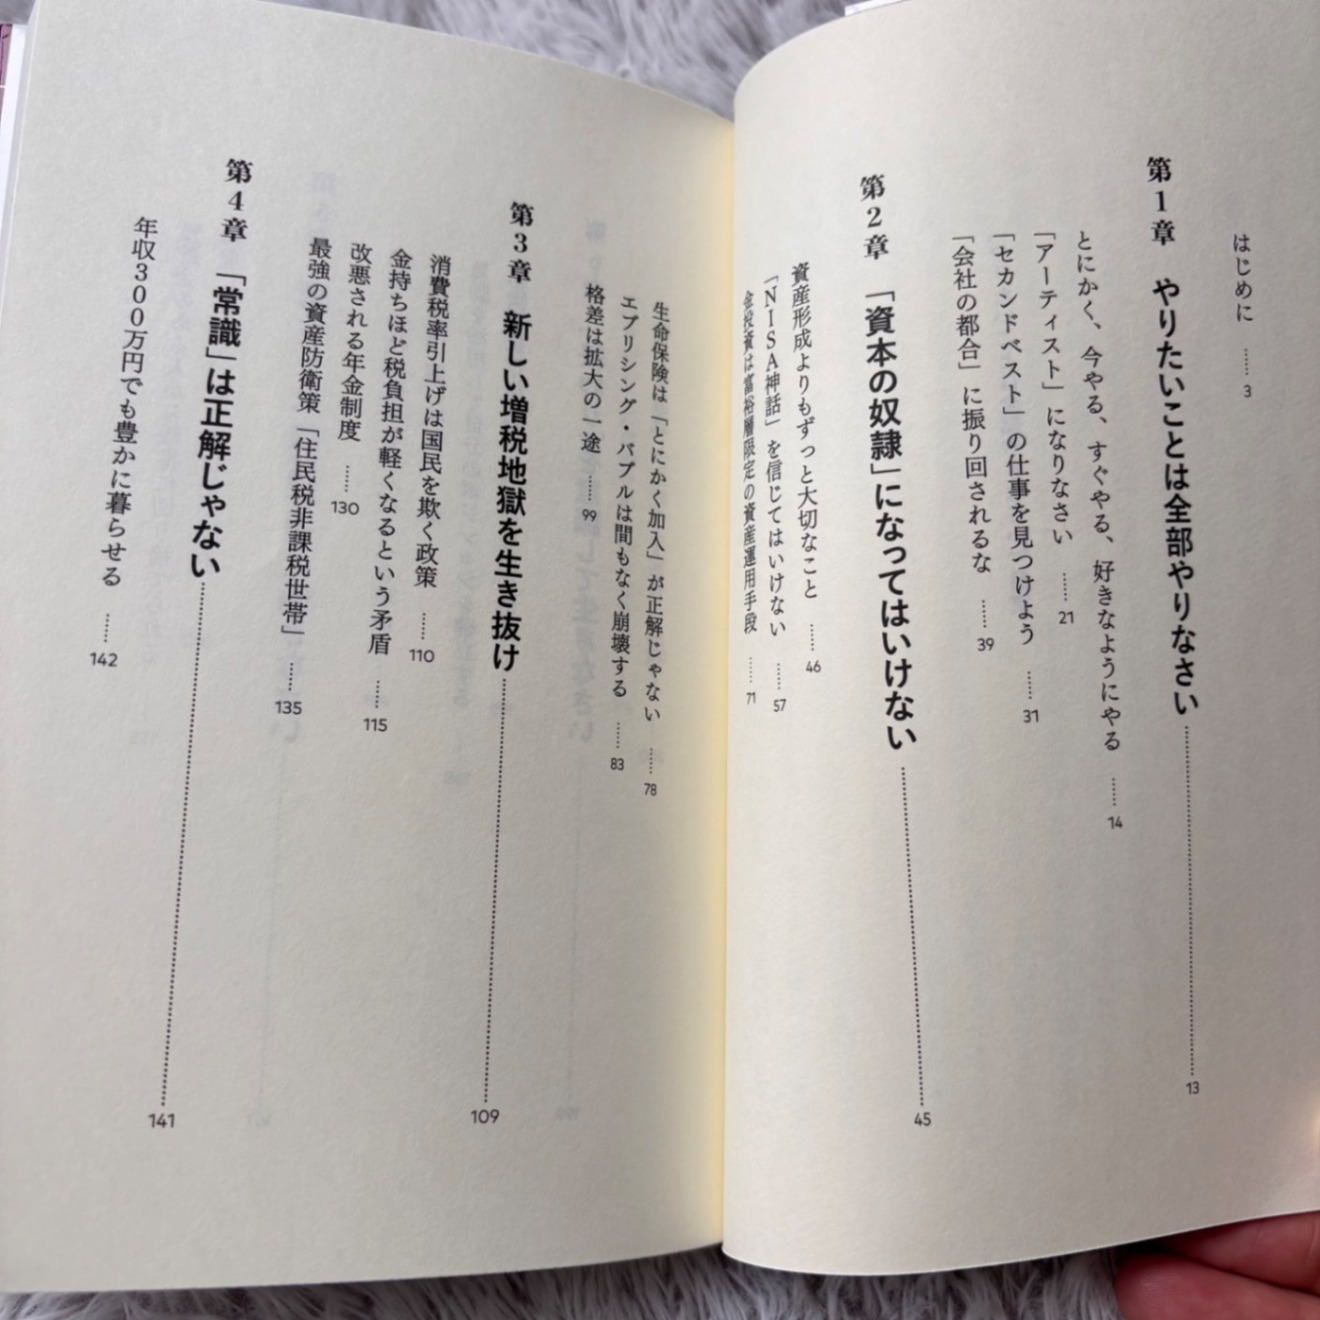 はじめに …… 3
第1章 やりたいことは全部やりなさい …… 13
とにかく、今やる、すぐやる、好きなようにやる …… 14
「アーティスト」になりなさい …… 21
「セカンドベスト」の仕事を見つけよう …… 31
「会社の都合」に振り回されるな …… 39
第2章 「資本の奴隷」になってはいけない …… 45
資産形成よりもずっと大切なこと …… 46
「NISA神話」を信じてはいけない …… 57
金投資は富裕層限定の資産運用手段 …… 71
生命保険は「とにかく加入」が正解じゃない …… 78
エブリシング・バブルは間もなく崩壊する …… 83
格差は拡大の一途 …… 99
第3章 新しい増税地獄を生き抜け …… 109
消費税率引上げは国民を欺く政策 …… 110
金持ちほど税負担が軽くなるという矛盾 …… 115
改悪される年金制度 …… 130
最強の資産防衛策「住民税非課税世帯」 …… 135
第4章 「常識」は正解じゃない …… 141
年収300万円でも豊かに暮らせる …… 142